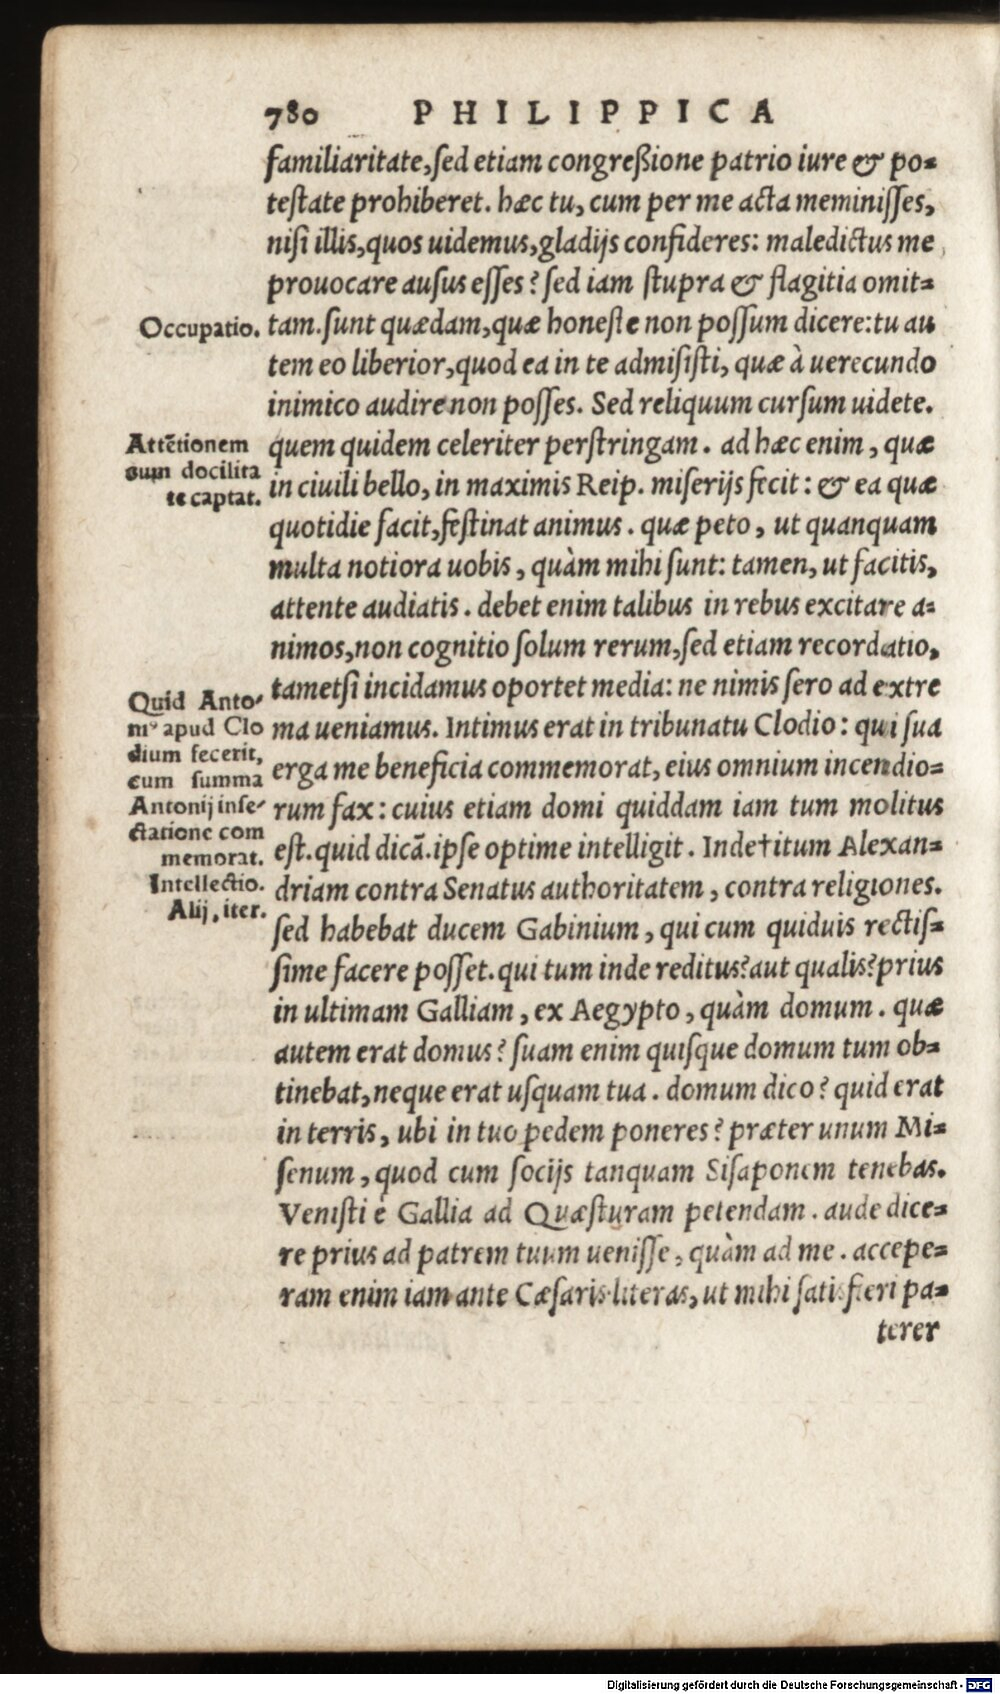 780 PHILIPPICA
familiaritate,sed etiam congreßione patrio iure & po=
testate prohiberet. hæc tu, cum per me acta meminisses,
nisi illis,quos uidemus,gladijs confideres: maledictus me
prouocare ausus esses? sed iam stupra & flagitia omit=
Occupatio.
tam.sunt quædam,quæ honeste non possum dicere:tu au
tem eo liberior,quod ea in te admisisti, quæ à uerecundo
inimico audire non posses. Sed reliquum cursum uidete.
Attētionem
cum docilita
te captat.
quem quidem celeriter perstringam. ad hæc enim, quæ
in ciuili bello, in maximis Reip. miserijs fecit: & ea quæ
quotidie facit,festinat animus. quæ peto, ut quanquam
multa notiora uobis, quàm mihi sunt: tamen, ut facitis,
attente audiatis. debet enim talibus in rebus excitare a=
nimos,non cognitio solum rerum,sed etiam recordatio,
Quid Anto-
niꝰ apud Clo
dium fecerit,
cum summa
Antonij inse-
ctatione com
memorat.
Intellectio.
Alij, iter.
tametsi incidamus oportet media: ne nimis sero ad extre
ma ueniamus. Intimus erat in tribunatu Clodio: qui sua
erga me beneficia commemorat, eius omnium incendio=
rum fax: cuius etiam domi quiddam iam tum molitus
est.quid dicā.ipse optime intelligit. Inde†itum Alexan=
driam contra Senatus authoritatem, contra religiones.
sed habebat ducem Gabinium, qui cum quiduis rectis=
sime facere posset.qui tum inde reditus?aut qualis?prius
in ultimam Galliam, ex Aegypto, quàm domum. quæ
autem erat domus? suam enim quisque domum tum ob=
tinebat,neque erat usquam tua. domum dico? quid erat
in terris, ubi in tuo pedem poneres? præter unum Mi=
senum, quod cum socijs tanquam Sisaponem tenebas.
Venisti é Gallia ad Quæsturam petendam. aude dice=
re prius ad patrem tuum uenisse, quàm ad me. accepe=
ram enim iam ante Cæsaris literas, ut mihi satis fieri pa=
terer
Digitalisierung gefördert durch die Deutsche Forschungsgemeinschaft - DFG